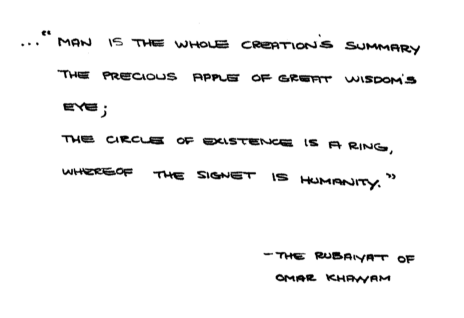 ..." MAN IS THE WHOLE CREATION'S SUMMARY
THE PRECIOUS APPLE OF GREAT WISDOM'S
EYE;
THE CIRCLE OF EXISTENCE IS A RING,
WHEREOF THE SIGNET IS HUMANITY."
-THE RUBAIYAT OF
OMAR KHAYAM